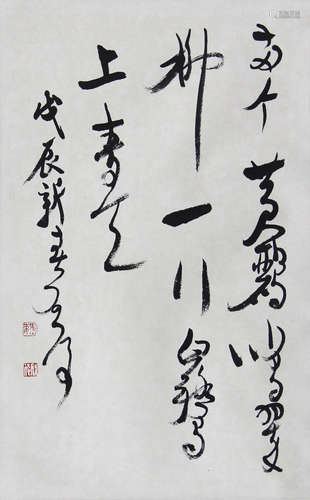 两个黄鹂鸣翠
柳一行白鹭
上青天
戊辰新春